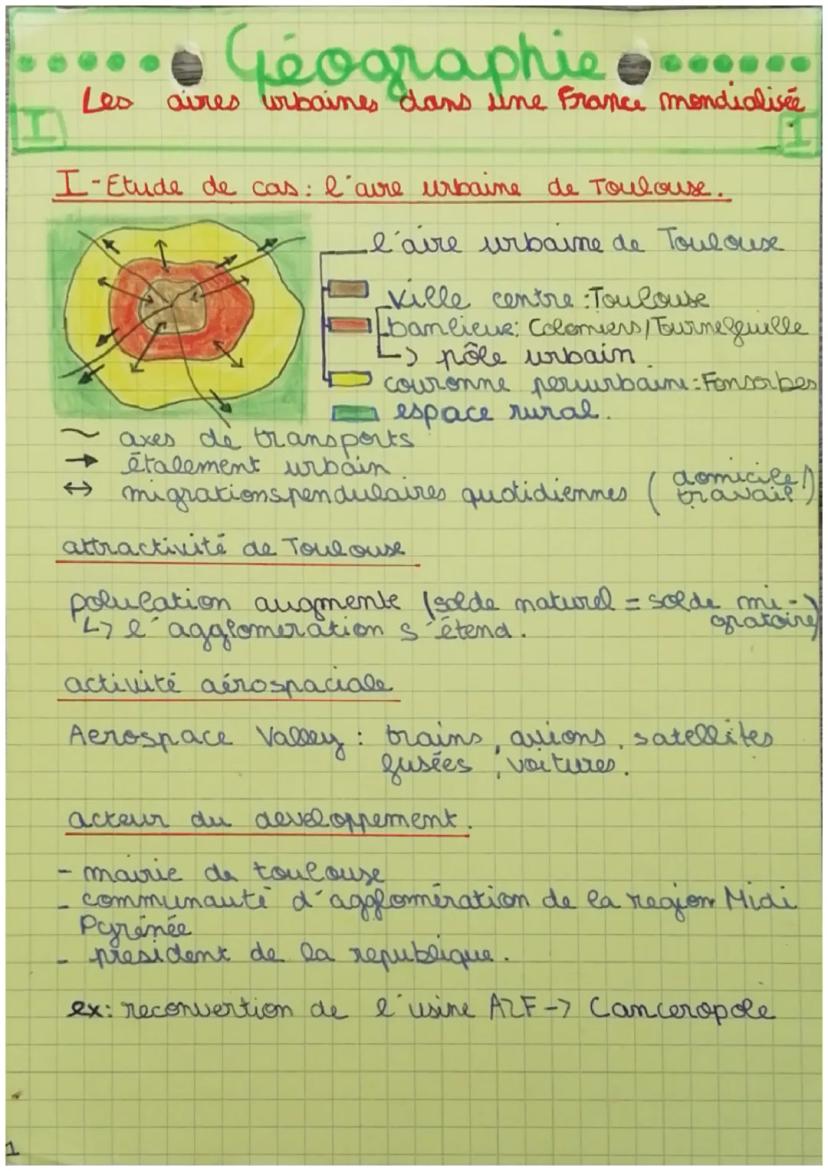 Géographie
Les aires urbaines dans une France mondialisée
I
I
I-Etude de cas: l'aire urbaine de Toulouse.
l'aire urbaine de Toulouse
ville centre: Toulouse
banlieue: Colomiers/Tournefeuille
↳ pôle urbain
couronne periurbaine: Fonsorbes
espace rural.
~ axes de transports
→ étalement urbain
↔ migrations pendulaires quotidiennes (domicile/
travail)
attractivité de Toulouse
population augmente (solde naturel = solde mi-
gratoire)
↳ l'agglomeration s'étend.
activité aérospaciale
Aerospace Valley: trains, avions, satellites
fusées, voitures.
acteur du developpement.
- mairie de toulouse
- communauté d'agglomération de la region Midi
Pyrénée
- president de la republique.
ex: reconvertion de l'usine AZF → Canceropole
1